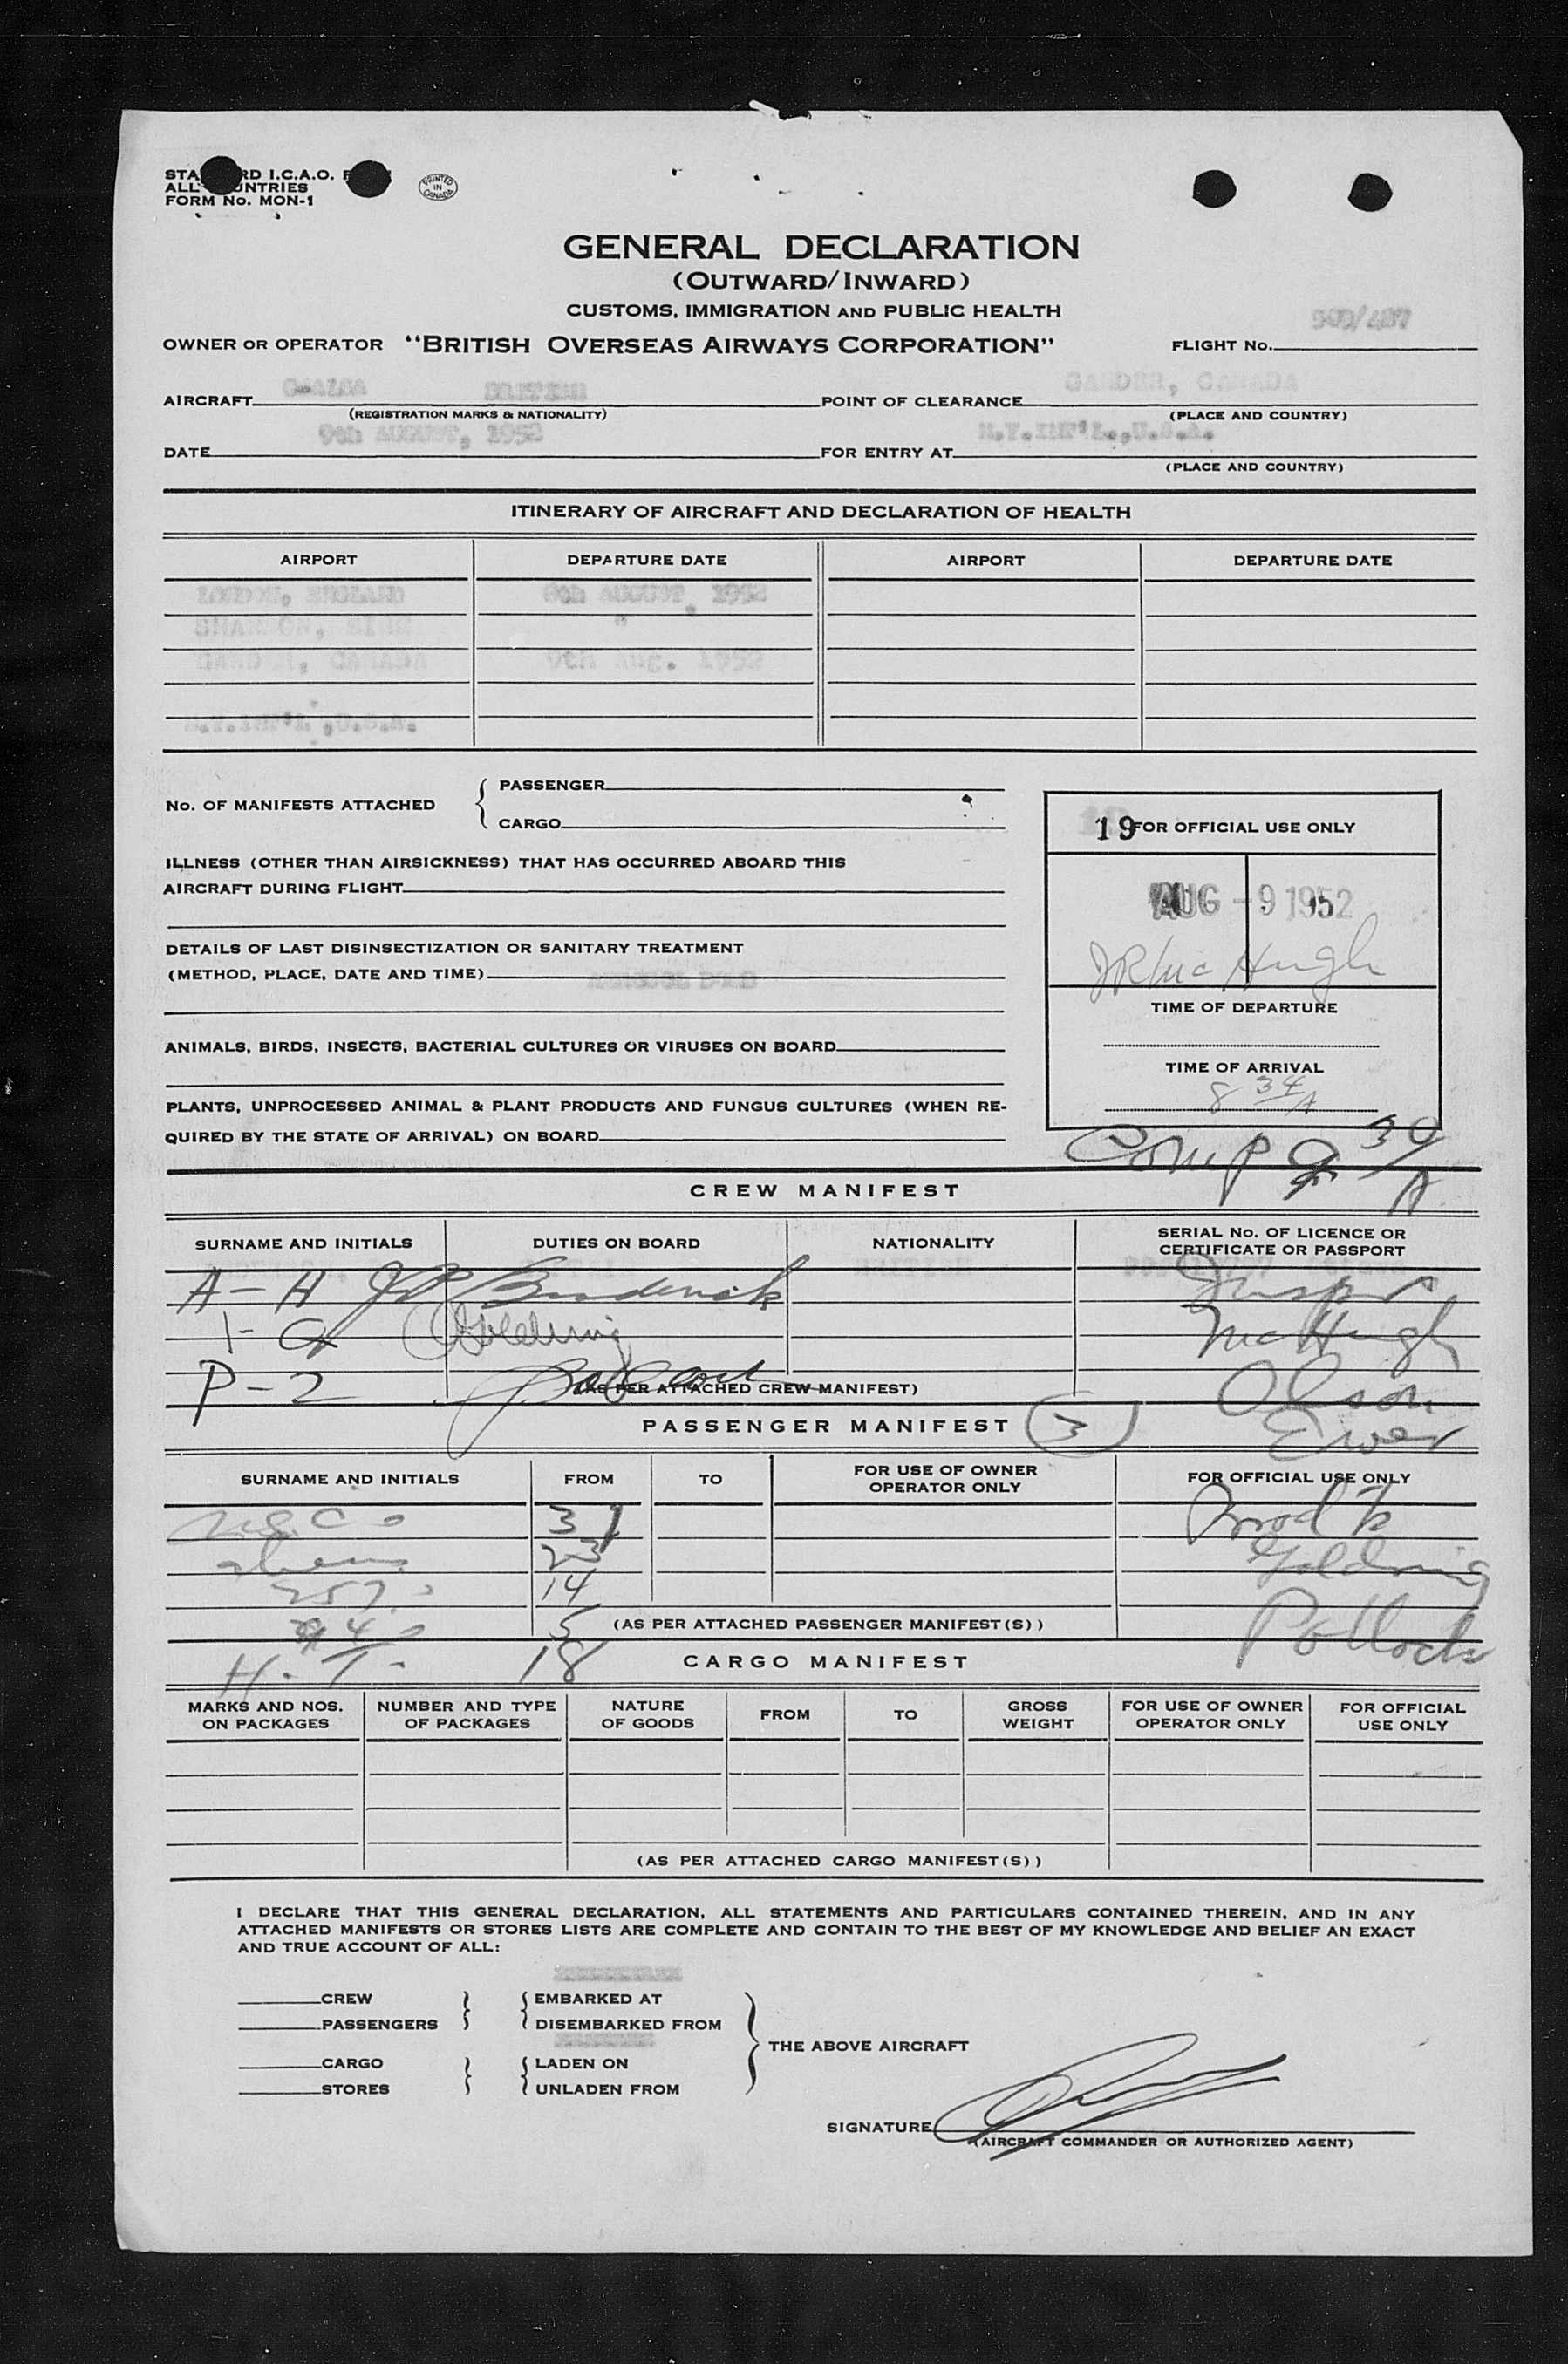 STA RD I.C.A.O.
ALL COUNTRIES
FORM No. MON-1
PRINTED IN CANADA
GENERAL DECLARATION
(OUTWARD/INWARD)
CUSTOMS, IMMIGRATION AND PUBLIC HEALTH
OWNER OR OPERATOR "BRITISH OVERSEAS AIRWAYS CORPORATION" FLIGHT No.
AIRCRAFT BRITISH POINT OF CLEARANCE GANDER, CANADA
(REGISTRATION MARKS & NATIONALITY) (PLACE AND COUNTRY)
DATE 9th AUGUST, 1952 FOR ENTRY AT N.Y.INT'L.,U.S.A.
(PLACE AND COUNTRY)
ITINERARY OF AIRCRAFT AND DECLARATION OF HEALTH
AIRPORT DEPARTURE DATE AIRPORT DEPARTURE DATE
LONDON, ENGLAND 8th AUGUST, 1952
SHANNON, EIRE "
GANDER, CANADA 9th Aug. 1952
N.Y.INT'L.,U.S.A.
No. OF MANIFESTS ATTACHED { PASSENGER
CARGO
19 FOR OFFICIAL USE ONLY
AUG -9 1952
JR McHugh
TIME OF DEPARTURE
TIME OF ARRIVAL
8 34/A
ILLNESS (OTHER THAN AIRSICKNESS) THAT HAS OCCURRED ABOARD THIS
AIRCRAFT DURING FLIGHT
DETAILS OF LAST DISINSECTIZATION OR SANITARY TREATMENT
(METHOD, PLACE, DATE AND TIME)
ANIMALS, BIRDS, INSECTS, BACTERIAL CULTURES OR VIRUSES ON BOARD
PLANTS, UNPROCESSED ANIMAL & PLANT PRODUCTS AND FUNGUS CULTURES (WHEN RE-
QUIRED BY THE STATE OF ARRIVAL) ON BOARD
Comp 9 30/A
CREW MANIFEST
SURNAME AND INITIALS DUTIES ON BOARD NATIONALITY SERIAL No. OF LICENCE OR
CERTIFICATE OR PASSPORT
A-H Broderick Insprs
I-O Goldring McHugh
P-Z Pollock (AS PER ATTACHED CREW MANIFEST) Olson
PASSENGER MANIFEST 3
SURNAME AND INITIALS FROM TO FOR USE OF OWNER
OPERATOR ONLY FOR OFFICIAL USE ONLY
31
aliens 23 Goldring
257 14
4 5 (AS PER ATTACHED PASSENGER MANIFEST(S)) Pollock
H.T. 18 CARGO MANIFEST
MARKS AND NOS.
ON PACKAGES NUMBER AND TYPE
OF PACKAGES NATURE
OF GOODS FROM TO GROSS
WEIGHT FOR USE OF OWNER
OPERATOR ONLY FOR OFFICIAL
USE ONLY
(AS PER ATTACHED CARGO MANIFEST(S))
I DECLARE THAT THIS GENERAL DECLARATION, ALL STATEMENTS AND PARTICULARS CONTAINED THEREIN, AND IN ANY
ATTACHED MANIFESTS OR STORES LISTS ARE COMPLETE AND CONTAIN TO THE BEST OF MY KNOWLEDGE AND BELIEF AN EXACT
AND TRUE ACCOUNT OF ALL:
CREW } { EMBARKED AT
PASSENGERS DISEMBARKED FROM
} THE ABOVE AIRCRAFT
CARGO } { LADEN ON
STORES UNLADEN FROM
SIGNATURE
(AIRCRAFT COMMANDER OR AUTHORIZED AGENT)